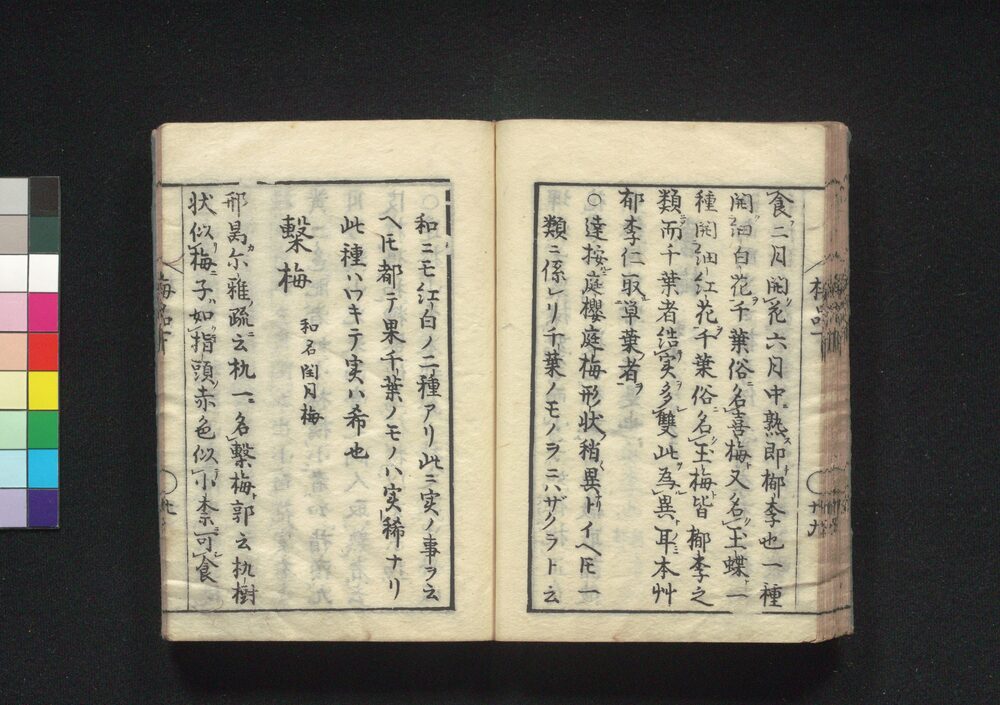 食二月開花六月中熟即櫷李也一種
開油白花千葉俗名喜梅又名玉蝶一
種開油紅花千葉俗名玉梅皆櫷李之
類而千葉者結実多雙此為異耳本艸
郁李仁取單葉者
○達按庭櫻庭梅形状稍異トイヘ𪜈一
類ニ係レリ千葉ノモノヲニハザクラト云
和ニモ紅白ノ二種アリ此ニ実ノ事ヲ云
ヘ𪜈都テ果千葉ノモノハ実稀ナリ
此種ハワキテ実ハ希也
檕梅
和名閏月梅
邢昺尓雅疏云朹一名檕梅郭云朹樹
状似梅子如指頭赤色似小柰可食
梅品下